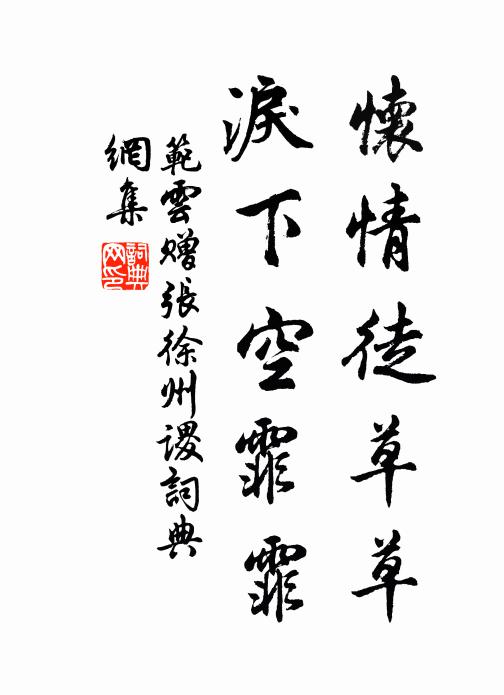 懷情徒草草
淚下空霏霏
範雲贈張徐州謖詞典
網集
詞典網印